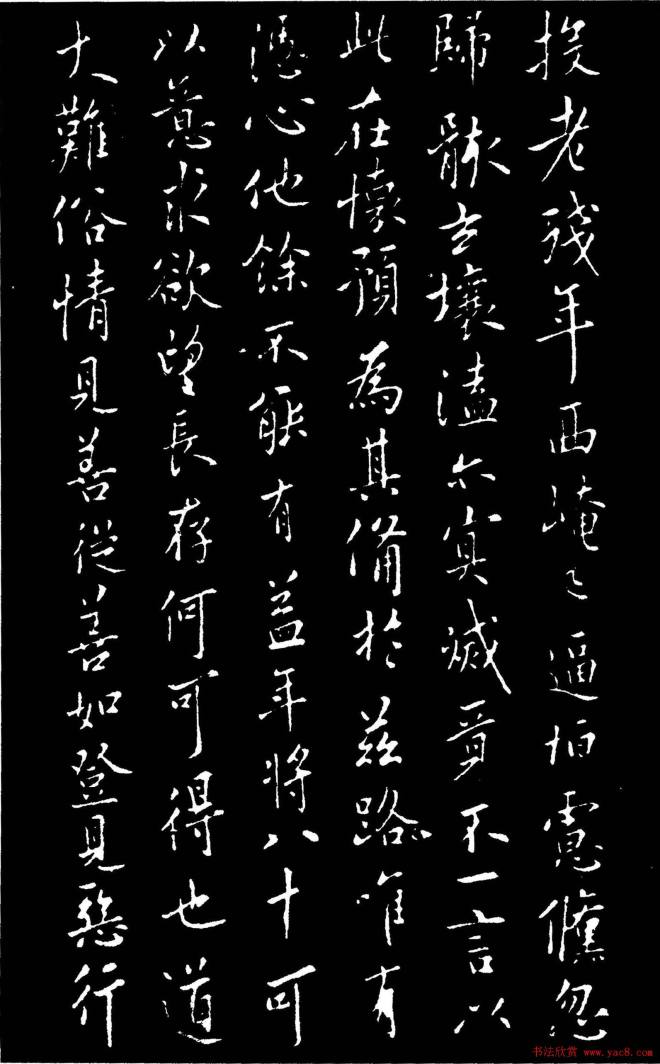 投老殘年西崦之逼怕慮儻忽
歸骸玄壤溘尒冥滅不一言以
此在懷預為其備於茲路唯有
憑心他餘不能有益年將八十可
以意求欲望長存何可得也道
大難俗情見善從善如登見惡行
书法欣赏 www.yac8.com